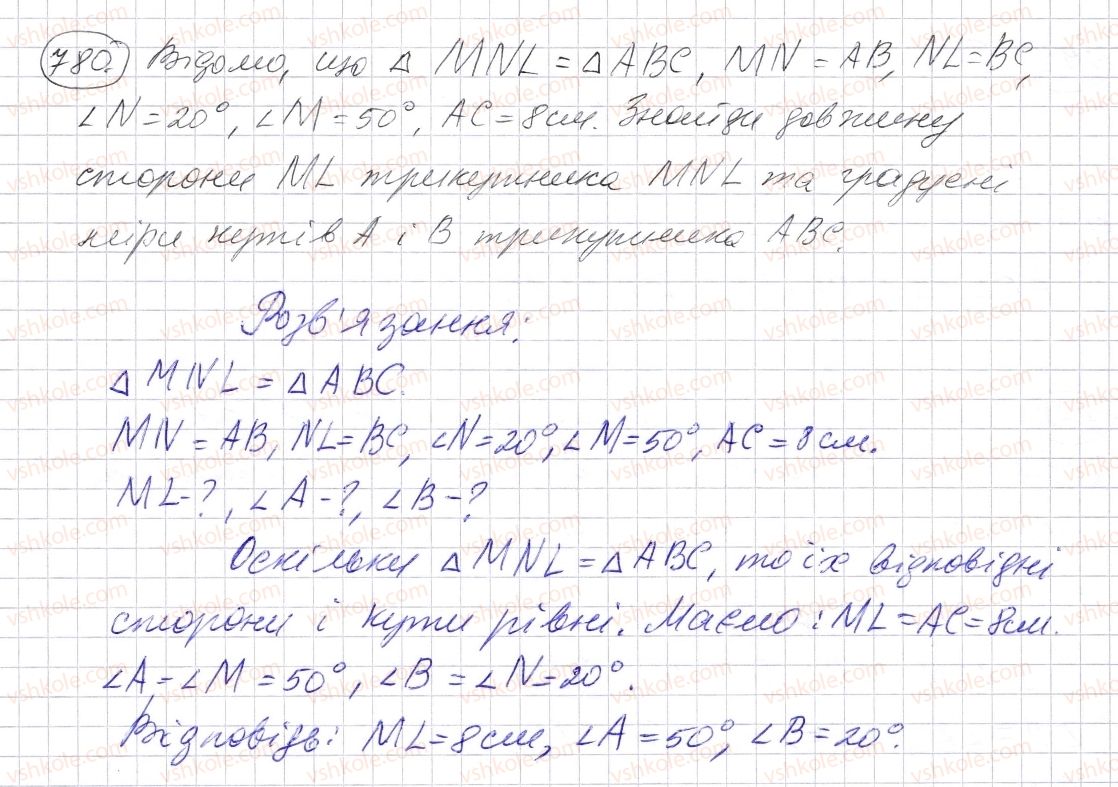 780. Відомо, що △ MNL = △ ABC, MN = AB, NL = BC,
∠N = 20°, ∠M = 50°, AC = 8 см. Знайди довжину
сторони ML трикутника MNL та градусні
міри кутів A і B трикутника ABC.
Розв'язання:
△ MNL = △ ABC.
MN = AB, NL = BC, ∠N = 20°, ∠M = 50°, AC = 8 см.
ML - ?, ∠A - ?, ∠B - ?
Оскільки △ MNL = △ ABC, то їх відповідні
сторони і кути рівні. Маємо: ML = AC = 8 см.
∠A = ∠M = 50°, ∠B = ∠N = 20°.
Відповідь: ML = 8 см, ∠A = 50°, ∠B = 20°.
vshkole.com